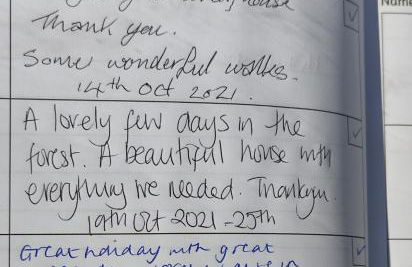 house
Thank you.
Some wonderful walks.
14th Oct 2021.
A lovely few days in the
forest. A beautiful house with
everything we needed. Thankyou.
19th Oct 2021 - 25th
Great holiday with great